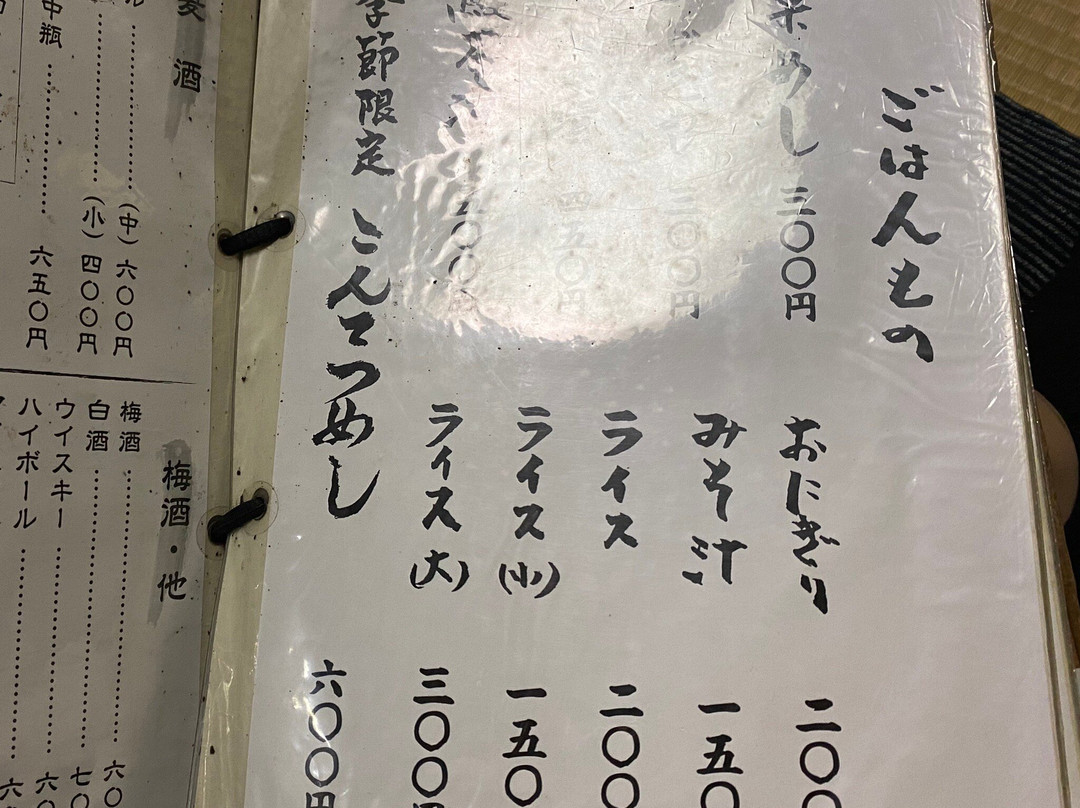 ごはんもの
めし 三〇〇円
三〇〇円
四五〇円
おにぎり 二〇〇
みそ汁 一五〇
ライス 二〇〇
ライス(小) 一五〇
ライス(大) 三〇〇円
季節限定 こんてつめし 六〇〇円
酒
(中) 六〇〇円
(小) 四〇〇円
中瓶 六五〇円
梅酒・他
梅酒 六〇
白酒 七〇
ウイスキー 六〇
ハイボール 六